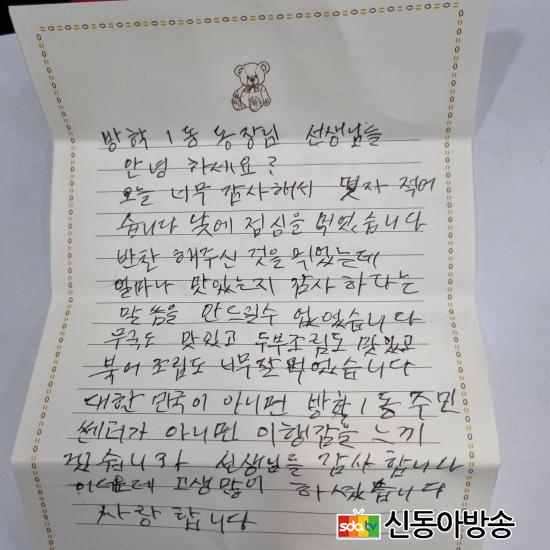 방학 1동 동장님 선생님들
안녕 하세요?
오늘 너무 감사해서 몇자 적어
습니다 낮에 점심을 먹었습니다
반찬 해주신 것을 먹었는데
얼마나 맛있는지 감사 하다는
말씀을 안드릴수 없었습니다
무국도 맛있고 두부조림도 맛있고
북어 조림도 너무잘 먹었습니다
대한 민국이 아니면 방학1동 주민
쎈터가 아니면 이행감을 느끼
겠습니까 선생님들 감사 합니다
이더운데 고생많이 하셨습니다
사랑 합니다
sdatv 신동아방송